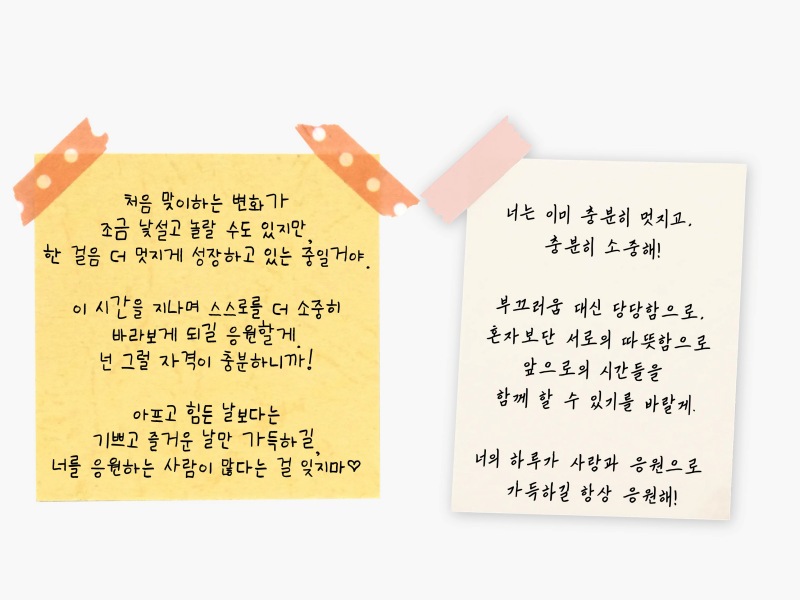 처음 맞이하는 변화가
조금 낯설고 놀랄 수도 있지만,
한 걸음 더 멋지게 성장하고 있는 중일거야.
이 시간을 지나며 스스로를 더 소중히
바라보게 되길 응원할게.
넌 그럴 자격이 충분하니까!
아프고 힘든 날보다는
기쁘고 즐거운 날만 가득하길,
너를 응원하는 사람이 많다는 걸 잊지마♡
너는 이미 충분히 멋지고,
충분히 소중해!
부끄러움 대신 당당함으로,
혼자보단 서로의 따뜻함으로
앞으로의 시간들을
함께 할 수 있기를 바랄게.
너의 하루가 사랑과 응원으로
가득하길 항상 응원해!